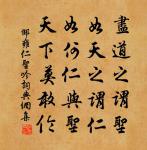 盡道之謂聖
如天之謂仁
如何仁與聖
天下莫敢倫
邵雍仁聖吟詞典網集